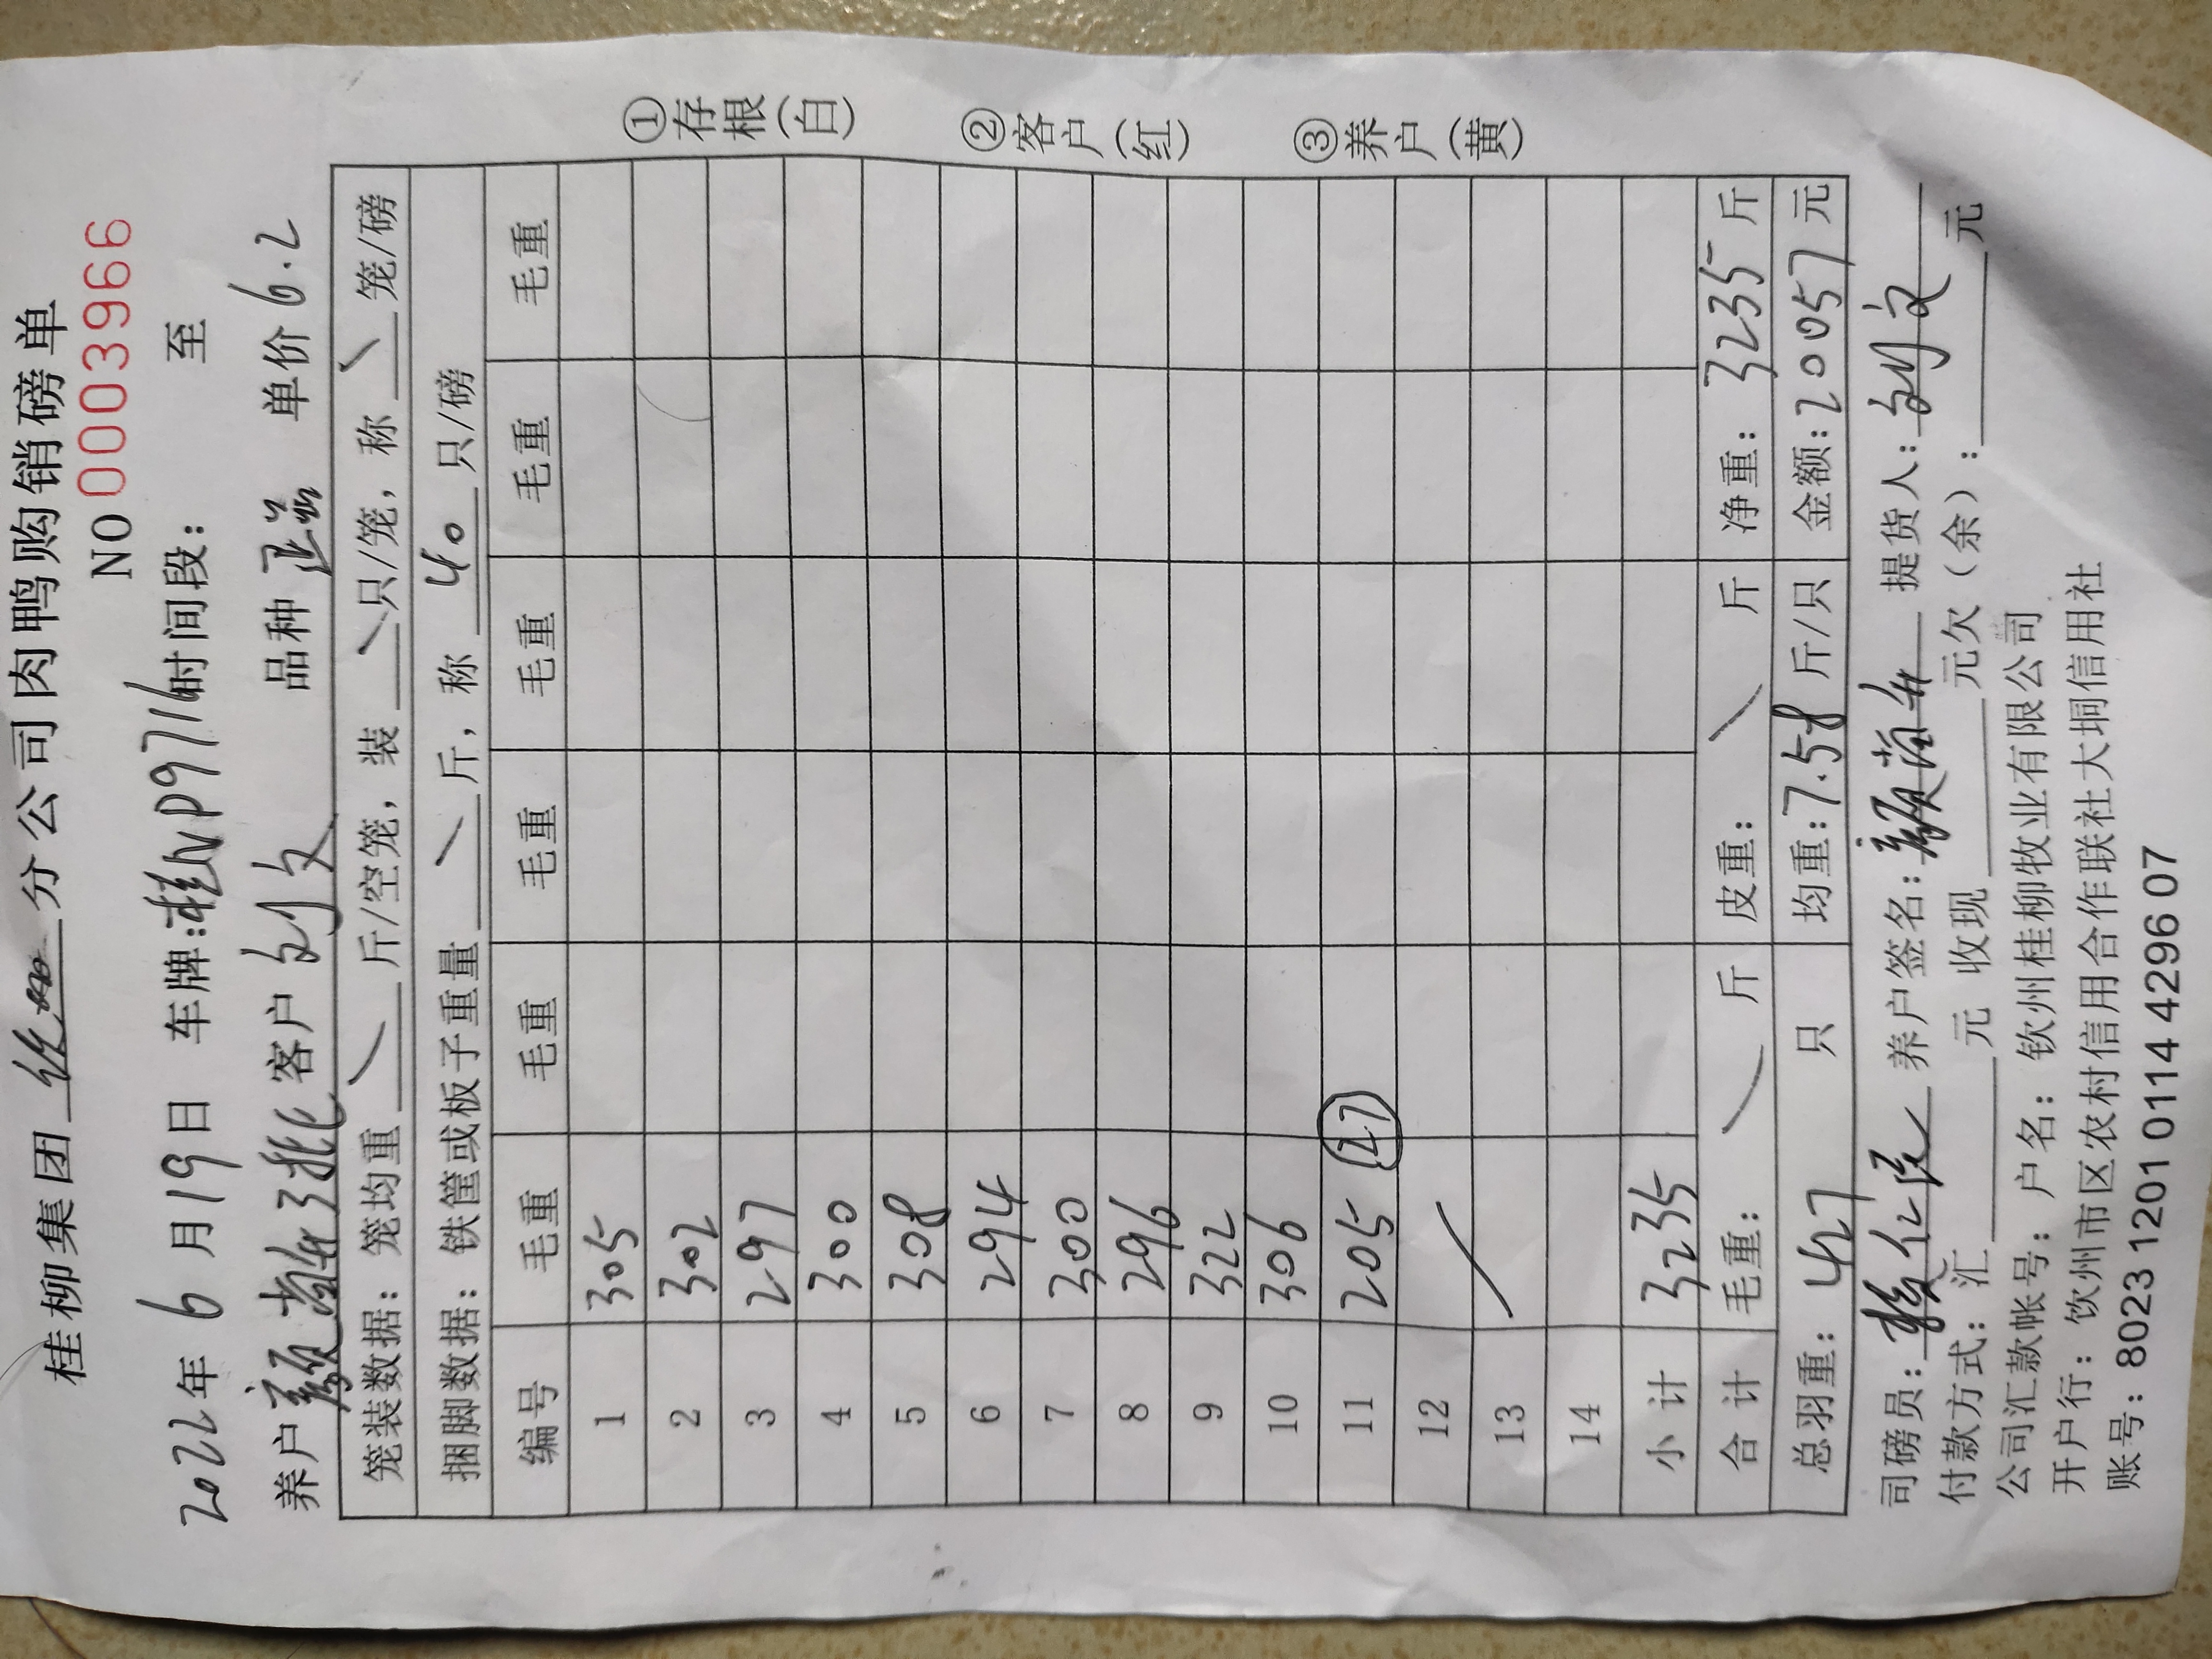 桂柳集团 分公司肉鸭购销磅单
NO 0003966
2022年 6 月 19 日 车牌:桂NP9716 时间段: 至
养户 颜 客户 刘文 品种 正品 单价 6.2
笼装数据: 笼均重 \ 斤/空笼, 装 \ 只/笼, 称 \ 笼/磅
捆脚数据: 铁筐或板子重量 \ 斤, 称 40 只/磅
编号 毛重 毛重 毛重 毛重 毛重 毛重
1 305
2 302
3 297
4 300
5 308
6 294
7 300
8 296
9 322
10 306
11 205 27
12
13
14
小计 3235
合计 毛重: \ 斤 皮重: \ 斤 净重: 3235 斤
总羽重: 427 只 均重: 7.58 斤/只 金额: 20057 元
司磅员: 养户签名: 颜 提货人: 刘文
付款方式: 汇 元 收现 元欠(余): 元
公司汇款帐号: 户名: 钦州桂柳牧业有限公司
开户行: 饮州市区农村信用合作联社大垌信用社
账号: 8023 1201 0114 4296 07
①存根(白)
②客户(红)
③养户(黄)